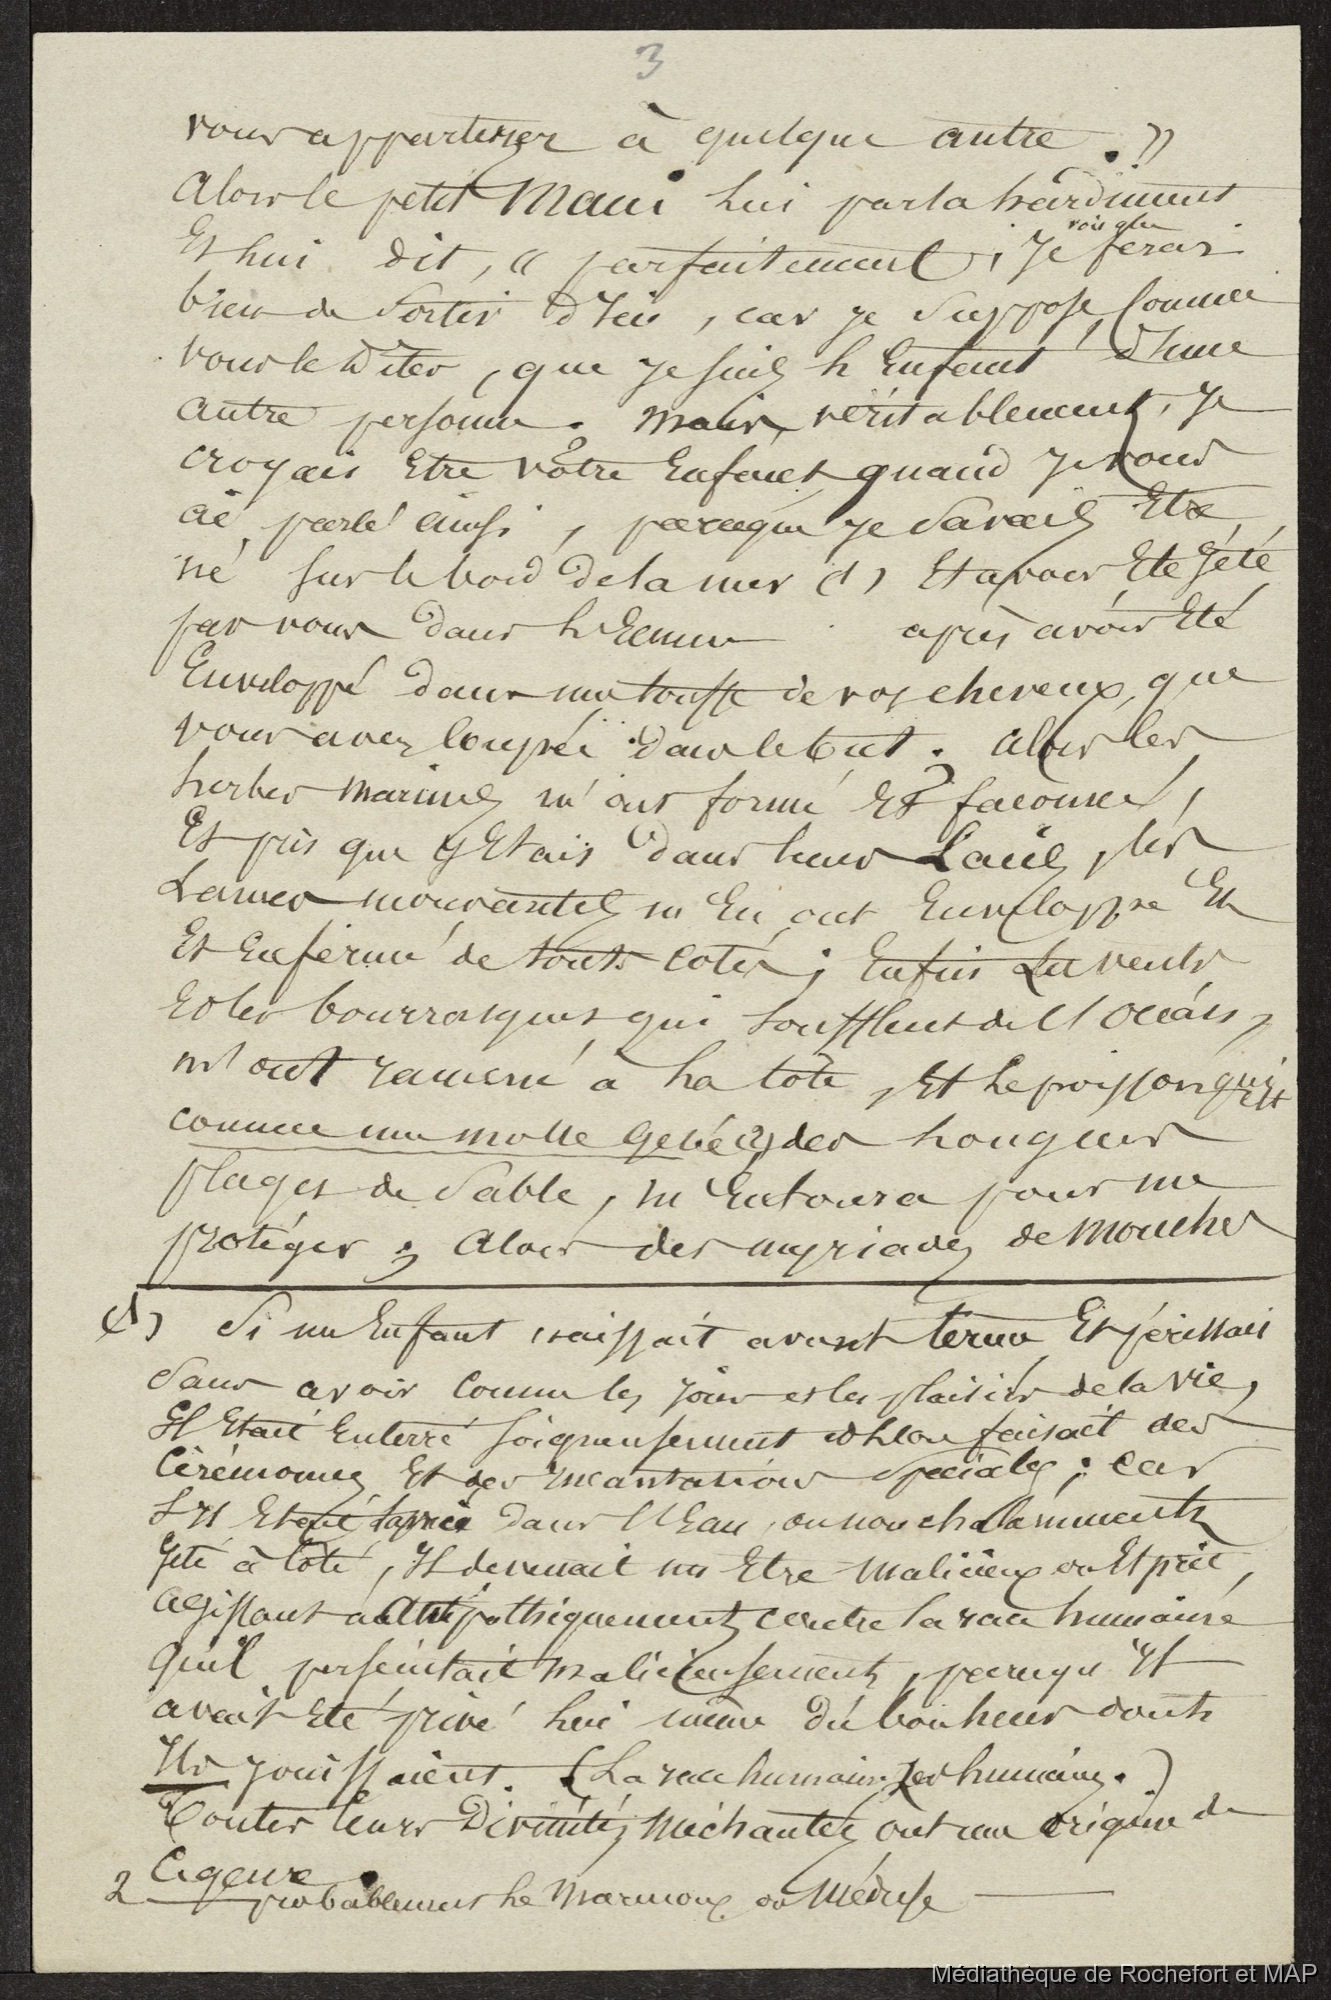 3
vous appartenez à quelque autre. »
Alors le petit Maui lui parla hardiment
Et lui dit, « parfaitement, je vois que ferai
bien de sortir d'ici, car je suppose, comme
vous le dites, que je suis l'Enfant d'une
autre personne. Mais, véritablement, je
croyais Etre votre Enfant, quand je vous
ai parlé ainsi, parceque je savais Etre
né sur le bord de la mer (1) Et avoir Eté jété
par vous dans l'Ecume après avoir Eté
Enveloppé dans une touffe de vos cheveux, que
vous avez coupée dans le but. Alors les
herbes marines m'ont formé Et faconné,
Et pis que j'Etais dans leurs Lacis, les
Lames mouvantes m'En ont Enveloppé Et
Et Enfermé de touts cotés; Enfin Les vents
Et les bourrasques qui soufflent de l'Océan,
m'ont ramené à la cote, Et le poisson qui Est
comme une molle gelée (2) des longues
plages de Sable, m'Entoura pour me
protéger; Alors des myriades de Mouches
(1) Si un Enfant naissait avant terme Et périssait
Sans avoir connu les joies et les plaisirs de la vie,
Il Etait Enterré soigneusement et l'on faisait des
Cérémonies Et des incantations spéciales; car
S'Il Etait dans l'Eau, ou nonchalamment
jété à coté, Il devenait un Etre malicieux ou Esprit,
agissant antipathiquement contre la race humaine
qu'il persécutait Malicieusement, parcequ'Il
avait Eté privé lui même du bonheur dont
Ils jouissaient. (La race humaine, les humains.)
Toutes leurs Divinités méchantes ont une origine de
Ce genre.
2 probablement le Marmoux ou Méduse
Médiathèque de Rochefort et MAP